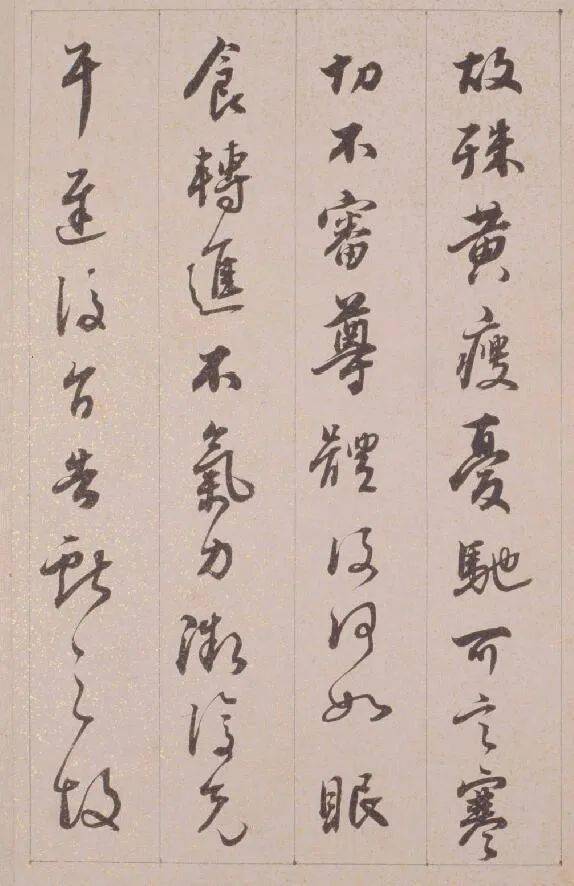 故殊黃瘦憂馳可言寒
切不審尊體復何如眠
食轉進不氣力漸復充
遲復告獻之故